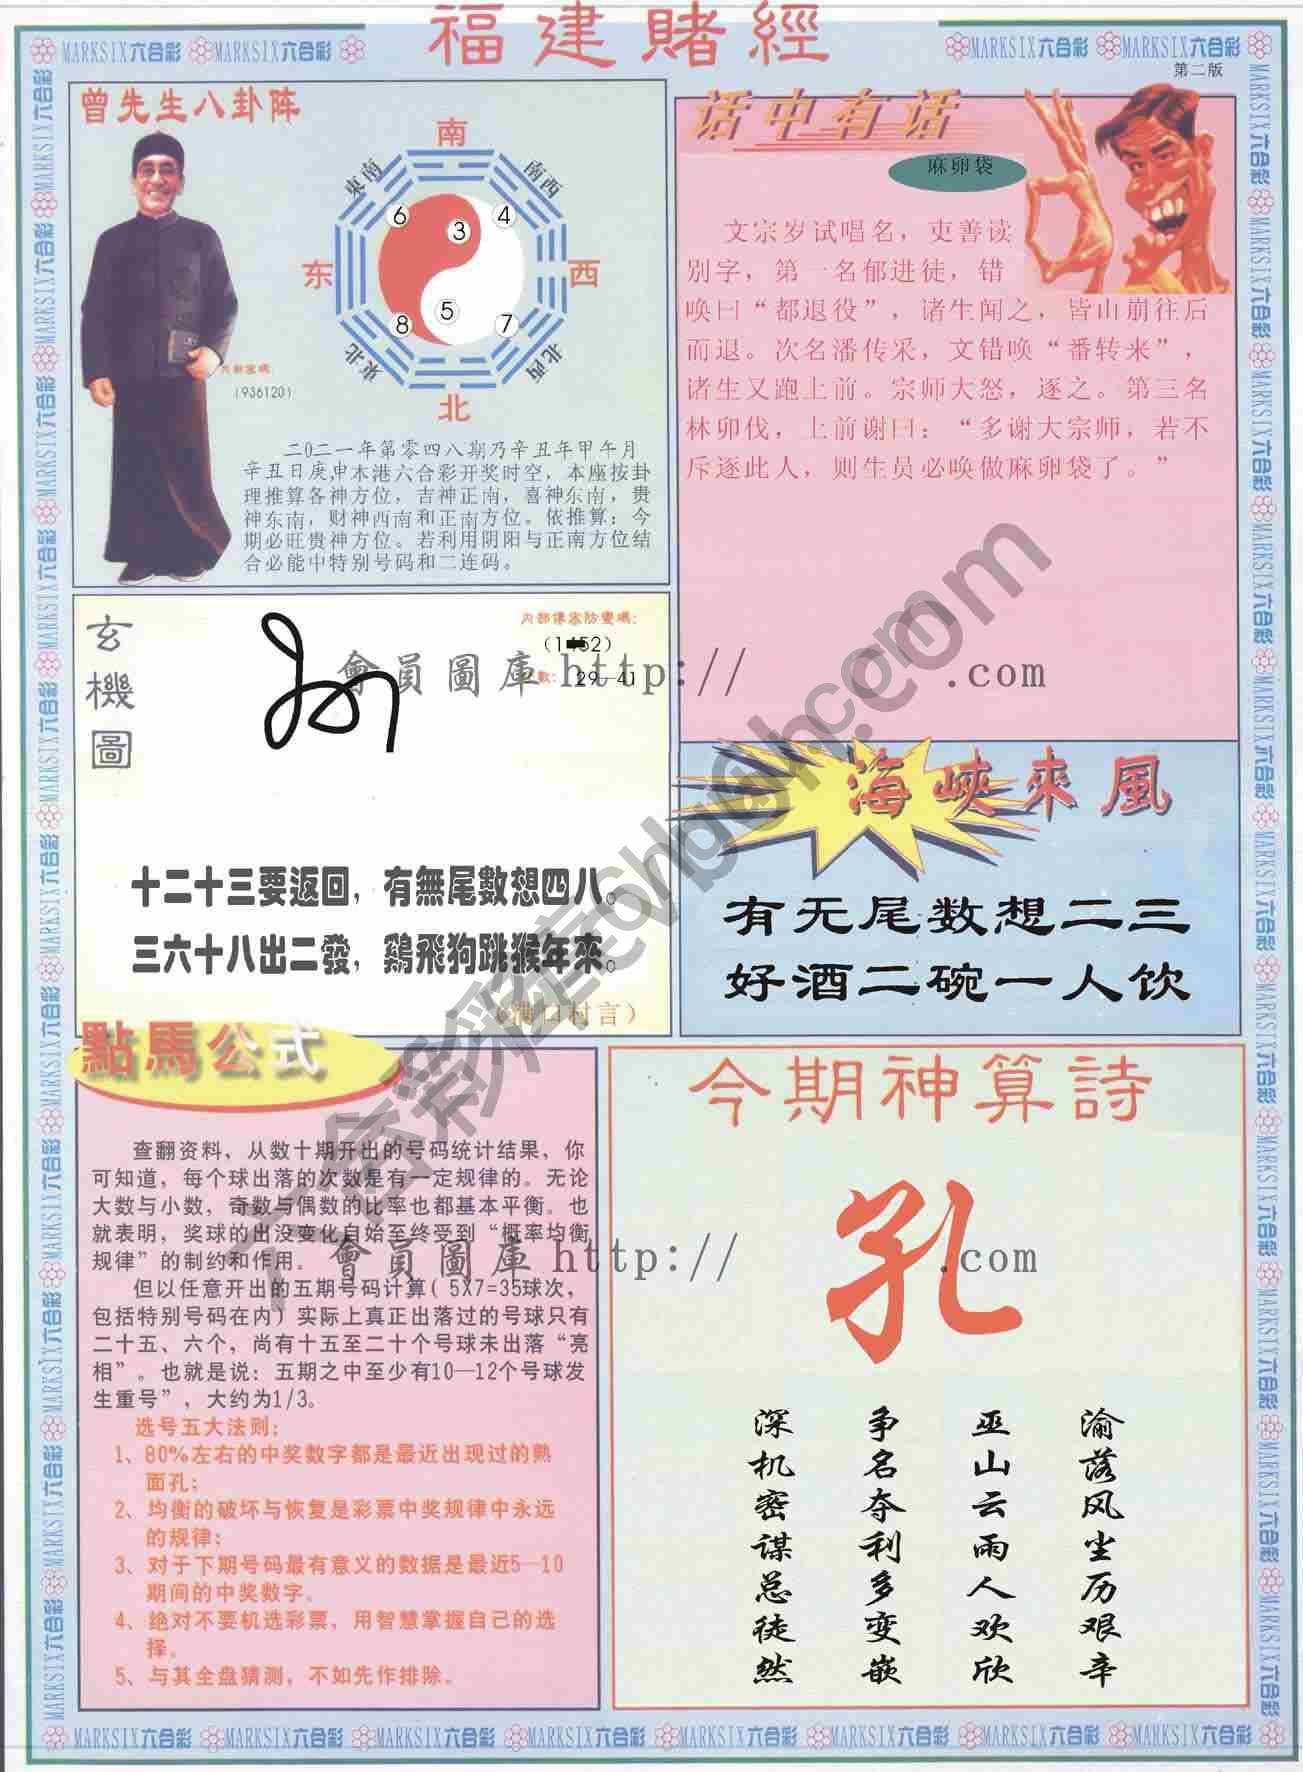 福建賭經
MARKSIX六合彩 MARKSIX六合彩
MARKSIX六合彩 MARKSIX六合彩
第二版
曾先生八卦阵
南
東南
南西
6
3
4
东
西
5
8
7
東北
北西
北
(936120)
二〇二一年第零四八期乃辛丑年甲午月
辛丑日庚申本港六合彩开奖时空，本座按卦
理推算各神方位，吉神正南，喜神东南，贵
神东南，财神西南和正南方位。依推算：今
期必旺贵神方位。若利用阴阳与正南方位结
合必能中特别号码和二连码。
话中有话
麻卵袋
文宗岁试唱名，吏善读
别字，第一名郁进徒，错
唤曰“都退役”，诸生闻之，皆山崩往后
而退。次名潘传采，文错唤“番转来”，
诸生又跑上前。宗师大怒，逐之。第三名
林卯伐，上前谢曰：“多谢大宗师，若不
斥逐此人，则生员必唤做麻卵袋了。”
玄機圖
29—41
會員圖庫 http:// .com
十二十三要返回，有無尾數想四八。
三六十八出二發，鷄飛狗跳猴年來。
（满口村言）
海峽來風
有无尾数想二三
好酒二碗一人饮
點馬公式
查翻资料，从数十期开出的号码统计结果，你
可知道，每个球出落的次数是有一定规律的。无论
大数与小数，奇数与偶数的比率也都基本平衡。也
就表明，奖球的出没变化自始至终受到“概率均衡
规律”的制约和作用。
但以任意开出的五期号码计算( 5X7=35球次，
包括特别号码在内）实际上真正出落过的号球只有
二十五、六个，尚有十五至二十个号球未出落“亮
相”。也就是说：五期之中至少有10—12个号球发
生重号”，大约为1/3。
选号五大法则：
1、80%左右的中奖数字都是最近出现过的熟
面孔；
2、均衡的破坏与恢复是彩票中奖规律中永远
的规律；
3、对于下期号码最有意义的数据是最近5—10
期间的中奖数字。
4、绝对不要机选彩票，用智慧掌握自己的选
择。
5、与其全盘猜测，不如先作排除。
會員圖庫 http:// .com
今期神算詩
孔
渝落风尘历艰辛
巫山云雨人欢欣
争名夺利多变嵌
深机密谋总徒然
MARKSIX六合彩 MARKSIX六合彩 MARKSIX六合彩 MARKSIX六合彩 MARKSIX六合彩 MARKSIX六合彩 MARKSIX六合彩 MARKSIX六合彩